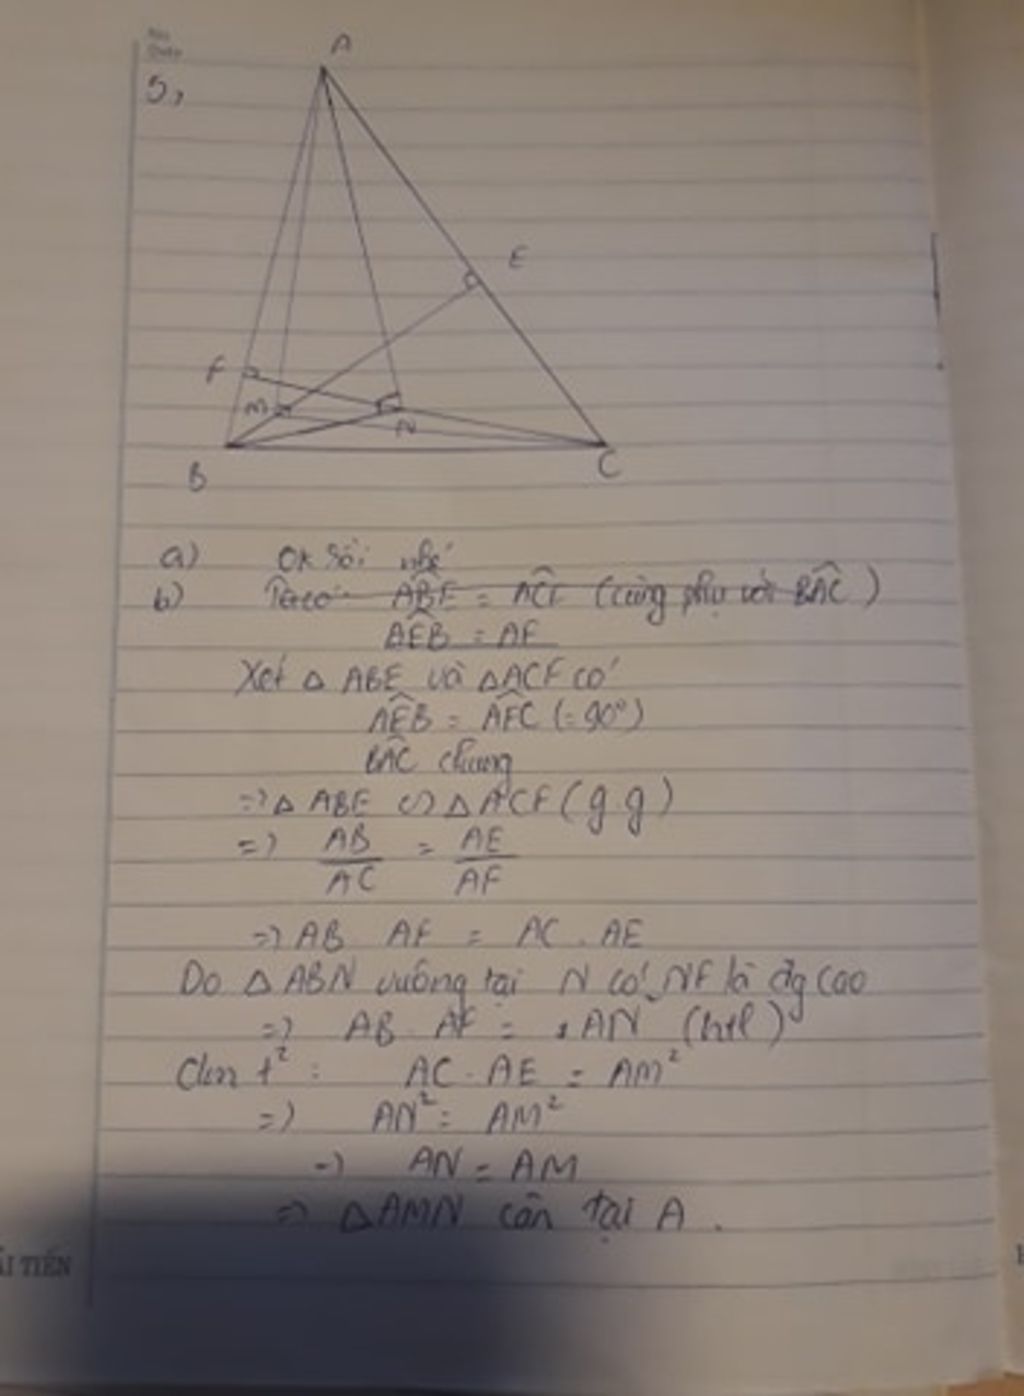 5,
A
E
F
M
N
B
C
a) OK rồi nhé
b) Ta có: ABE = ACF (cùng phụ với BAC)
AEB = AF
Xét △ ABE và △ACF có
AEB = AFC (= 90°)
BAC chung
=> △ ABE ∽ △ ACF (g.g)
=> AB/AC = AE/AF
=> AB AF = AC . AE
Do △ ABN vuông tại N có NF là đg cao
=> AB . AF = AN (htl)
Cm t²: AC . AE = AM²
=> AN² = AM²
=> AN = AM
=> △AMN cân tại A.
ẢI TIẾN